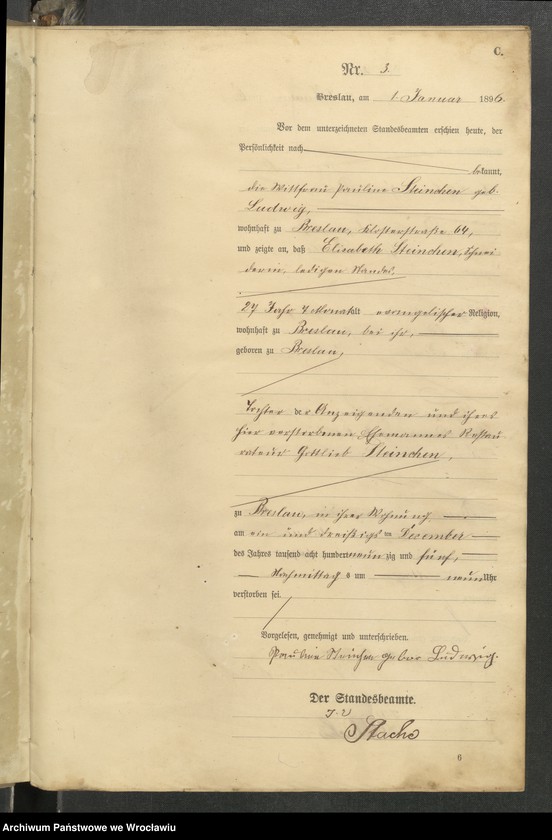 C.
Nr. 3.
Breslau, am 1. Januar 1896.
Vor dem unterzeichneten Standesbeamten erschien heute, der
Persönlichkeit nach
bekannt,
die Wittfrau Pauline Steinchen geb.
Ludwig,
wohnhaft zu Breslau, Klosterstraße 64,
und zeigte an, daß Elisabeth Steinchen, Schnei
derin, ledigen Standes,
27 Jahr 7 Monat alt evangelischer Religion,
wohnhaft zu Breslau, bei ihr,
geboren zu Breslau,
Tochter der Anzeigenden und ihres
hier verstorbenen Ehemannes Restau
rateur Gottlieb Steinchen,
zu Breslau, in ihrer Wohnung
am ein und dreißigsten December
des Jahres tausend acht hundert neun zig und fünf,
Nachmittags um neun Uhr
verstorben sei.
Vorgelesen, genehmigt und unterschrieben.
Pauline Steinchen gebor Ludwig.
Der Standesbeamte.
I. V.
Stache
6
Archiwum Państwowe we Wrocławiu